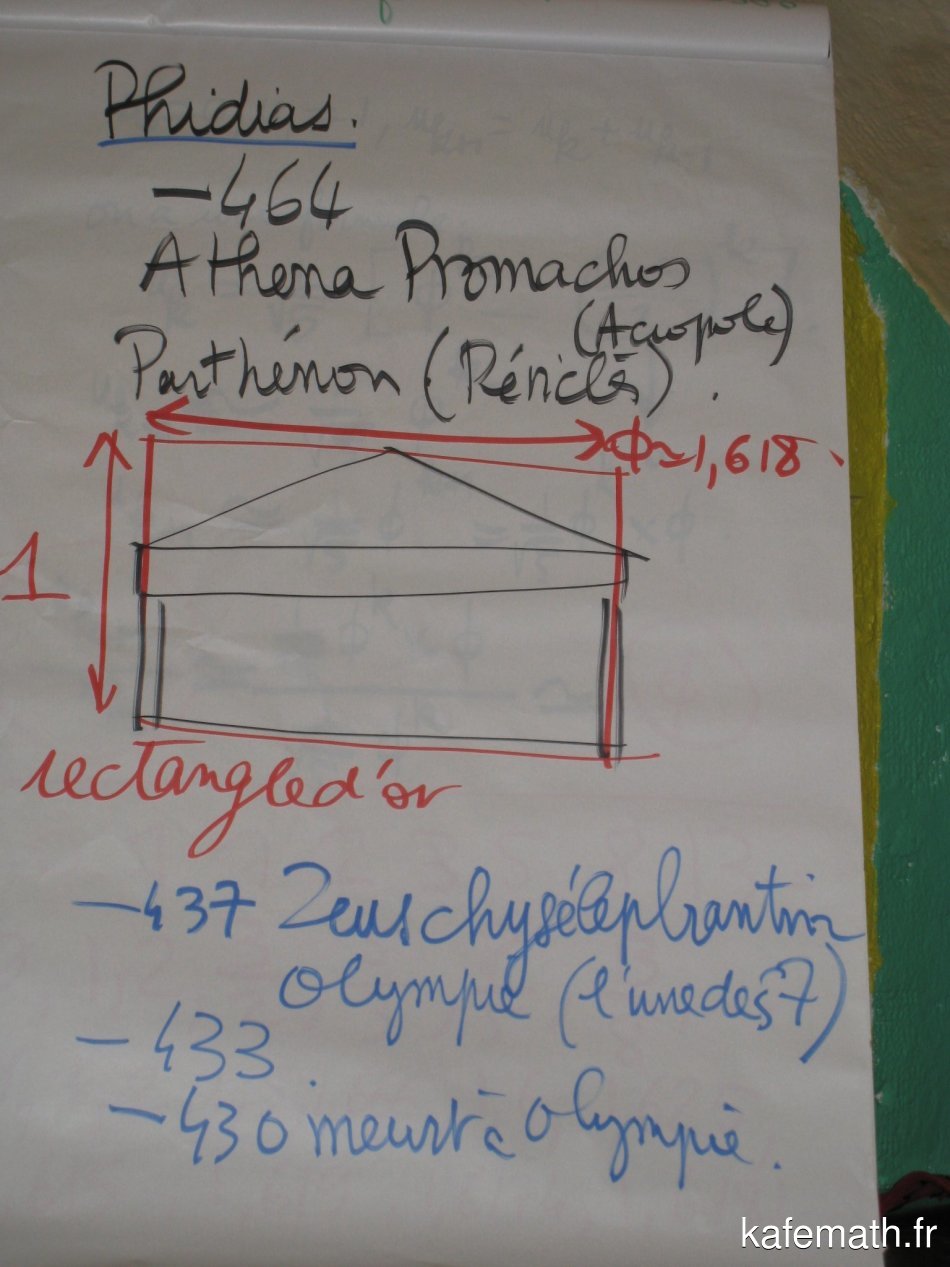 Phidias.
-464
Athena Promachos
(Acropole)
Parthénon (Périclès).
ϕ~1,618
1
rectangle d'or
-437 Zeus chyséléphantin
Olympie (l'une des 7)
-433.
-430 meurt à Olympie.
kafemath.fr